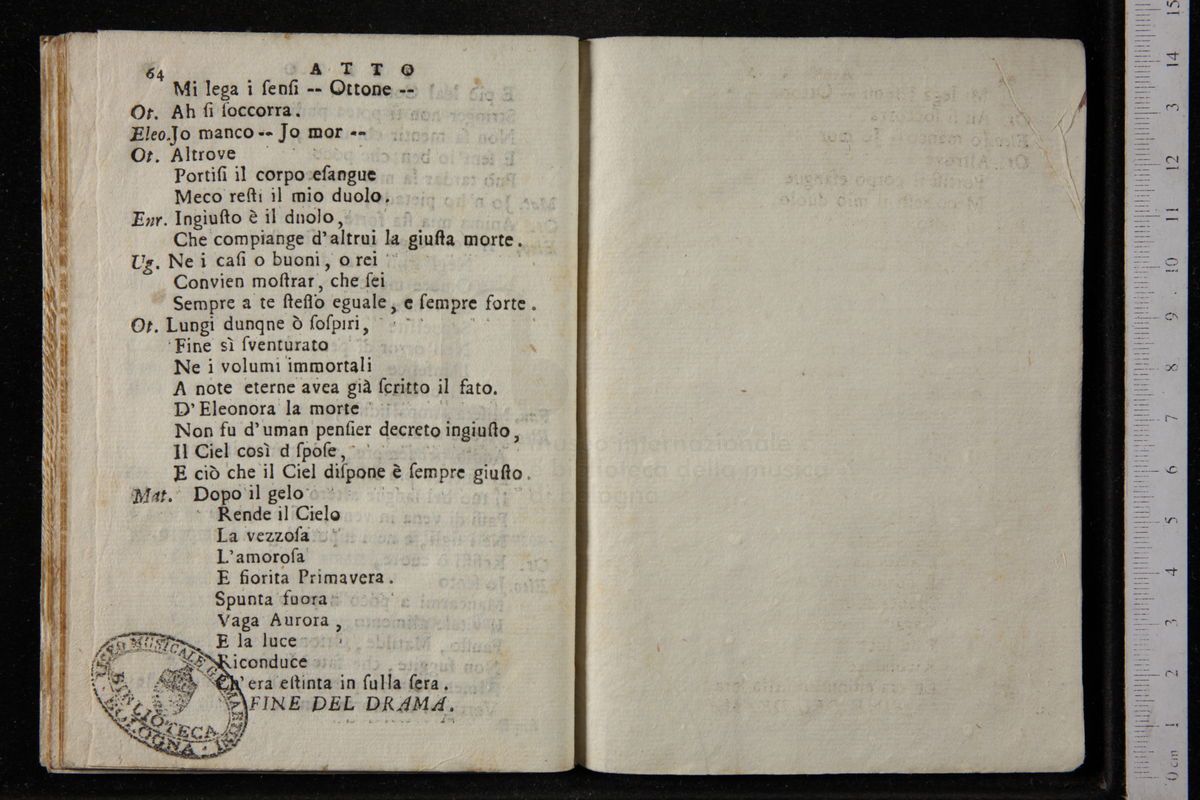 64 ATTO
Mi lega i ſenſi -- Ottone --
Ot. Ah ſi ſoccorra.
Eleo. Jo manco -- Jo mor --
Ot. Altrove
Portiſi il corpo eſangue
Meco reſti il mio duolo.
Enr. Ingiuſto è il dnolo,
Che compiange d'altrui la giuſta morte.
Ug. Ne i caſi o buoni, o rei
Convien moſtrar, che ſei
Sempre a te ſteſſo eguale, e ſempre forte.
Ot. Lungi dunqne ò ſoſpiri,
Fine sì ſventurato
Ne i volumi immortali
A note eterne avea già ſcritto il fato.
D'Eleonora la morte
Non fu d'uman penſier decreto ingiuſto,
Il Ciel così d ſpoſe,
E ciò che il Ciel diſpone è ſempre giuſto.
Mat. Dopo il gelo
Rende il Cielo
La vezzoſa
L'amoroſa
E fiorita Primavera.
Spunta fuora
Vaga Aurora,
E la luce
Riconduce
Ch'era eſtinta in ſulla ſera.
FINE DEL DRAMA.
LICEO MUSICALE G.B. MARTINI
BIBLIOTECA
BOLOGNA
Museo internazionale
e biblioteca della musica
di bologna
0 cm 1 2 3 4 5 6 7 8 9 10 11 12 13 14 15